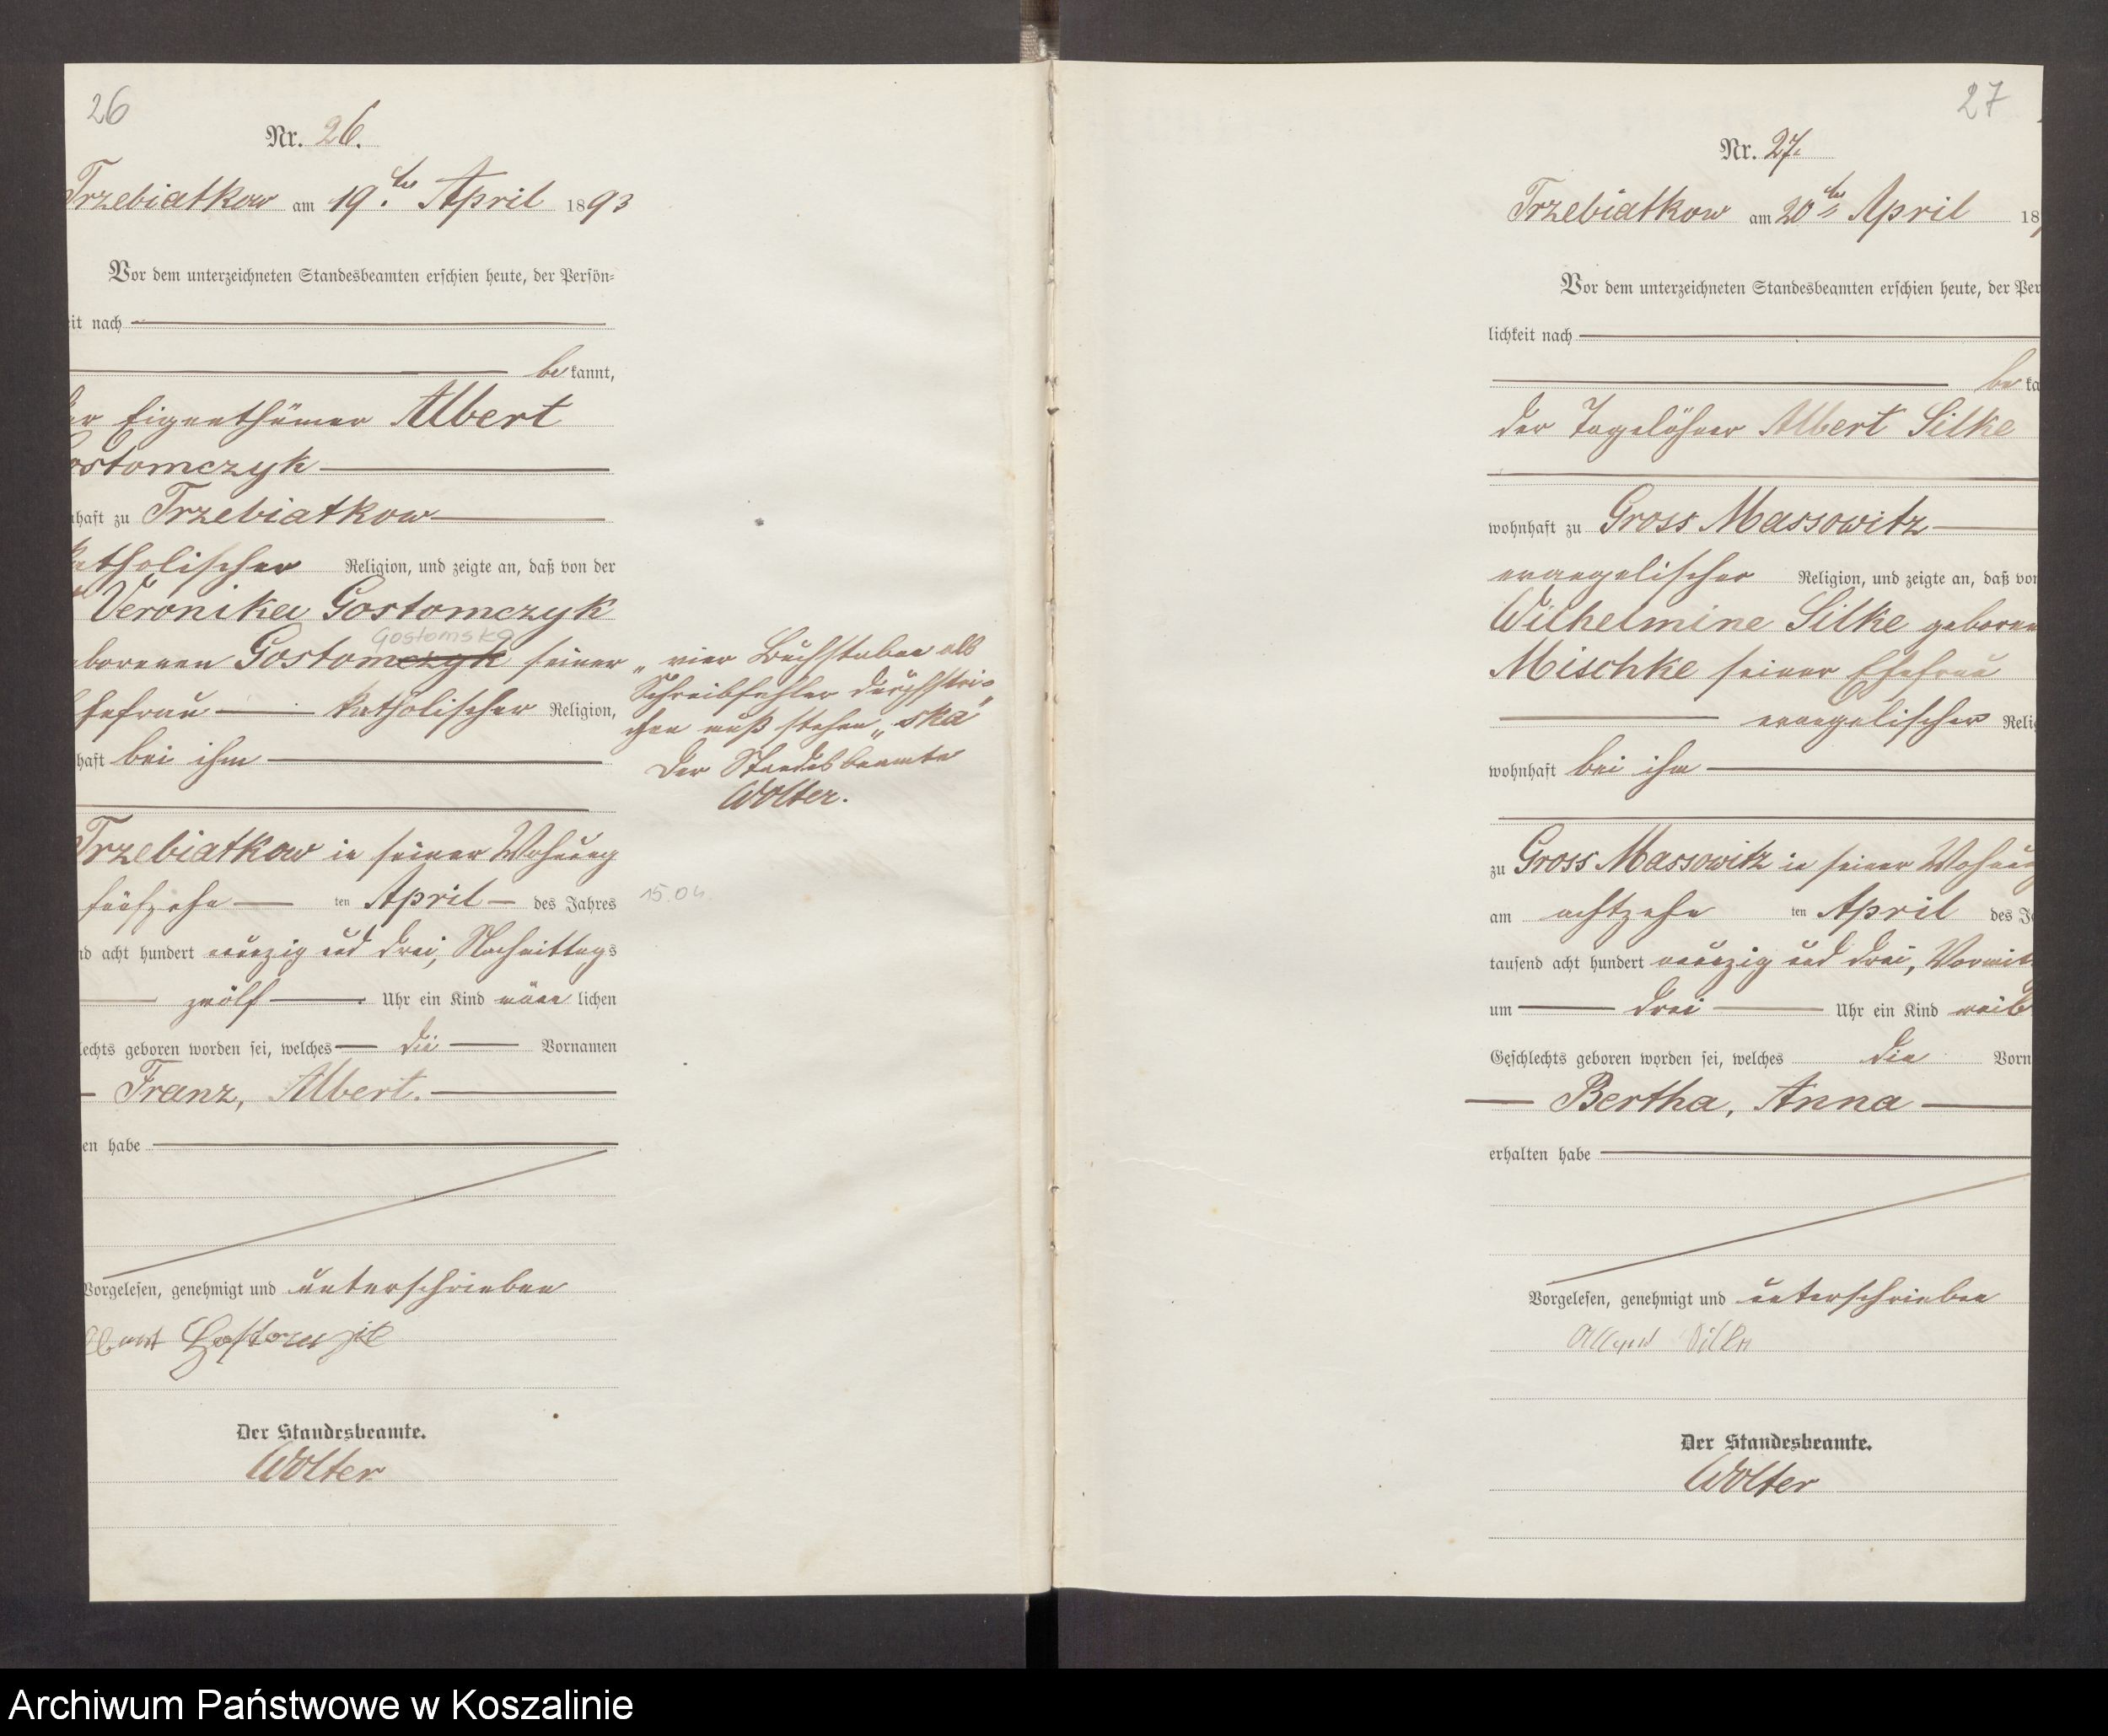 26
Nr. 26.
Trzebiatkow am 19.ten April 1893
Vor dem unterzeichneten Standesbeamten erschien heute, der Persön-
it nach
be kannt,
er Eigenthümer Albert
ostomczyk
haft zu Trzebiatkow
katholischer Religion, und zeigte an, daß von der
Veronika Gostomczyk
Gostomska
borenen Gostomczyk seiner
Ehefrau katholischer Religion,
haft bei ihm
Trzebiatkow in seiner Wohnung
fünfzehn ten April des Jahres
nd acht hundert neunzig und drei, Nachmittags
zwölf Uhr ein Kind männ lichen
lechts geboren worden sei, welches die Vornamen
Franz, Albert.
en habe
Vorgelesen, genehmigt und unterschrieben
Der Standesbeamte.
Wolter
„ vier Buchstaben als
Schreibfehler durchstri-
chen muß stehen „ska"
Der Standesbeamte
Wolter.
15.04
27
Nr. 27.
Trzebiatkow am 20ten April 18
Vor dem unterzeichneten Standesbeamten erschien heute, der Per
lichkeit nach
be ka
der Tagelöhner Albert Silke
wohnhaft zu Gross Massowitz
evangelischer Religion, und zeigte an, daß von
Wilhelmine Silke geboren
Mischke seiner Ehefrau
evangelischer Reli
wohnhaft bei ihm
zu Gross Massowitz in seiner Wohnung
am achtzehn ten April des J
tausend acht hundert neunzig und drei, Vormit
um drei Uhr ein Kind weib
Geschlechts geboren worden sei, welches die Vorn
Bertha, Anna
erhalten habe
Vorgelesen, genehmigt und unterschrieben
Albert Silke
Der Standesbeamte.
Wolter
Archiwum Państwowe w Koszalinie